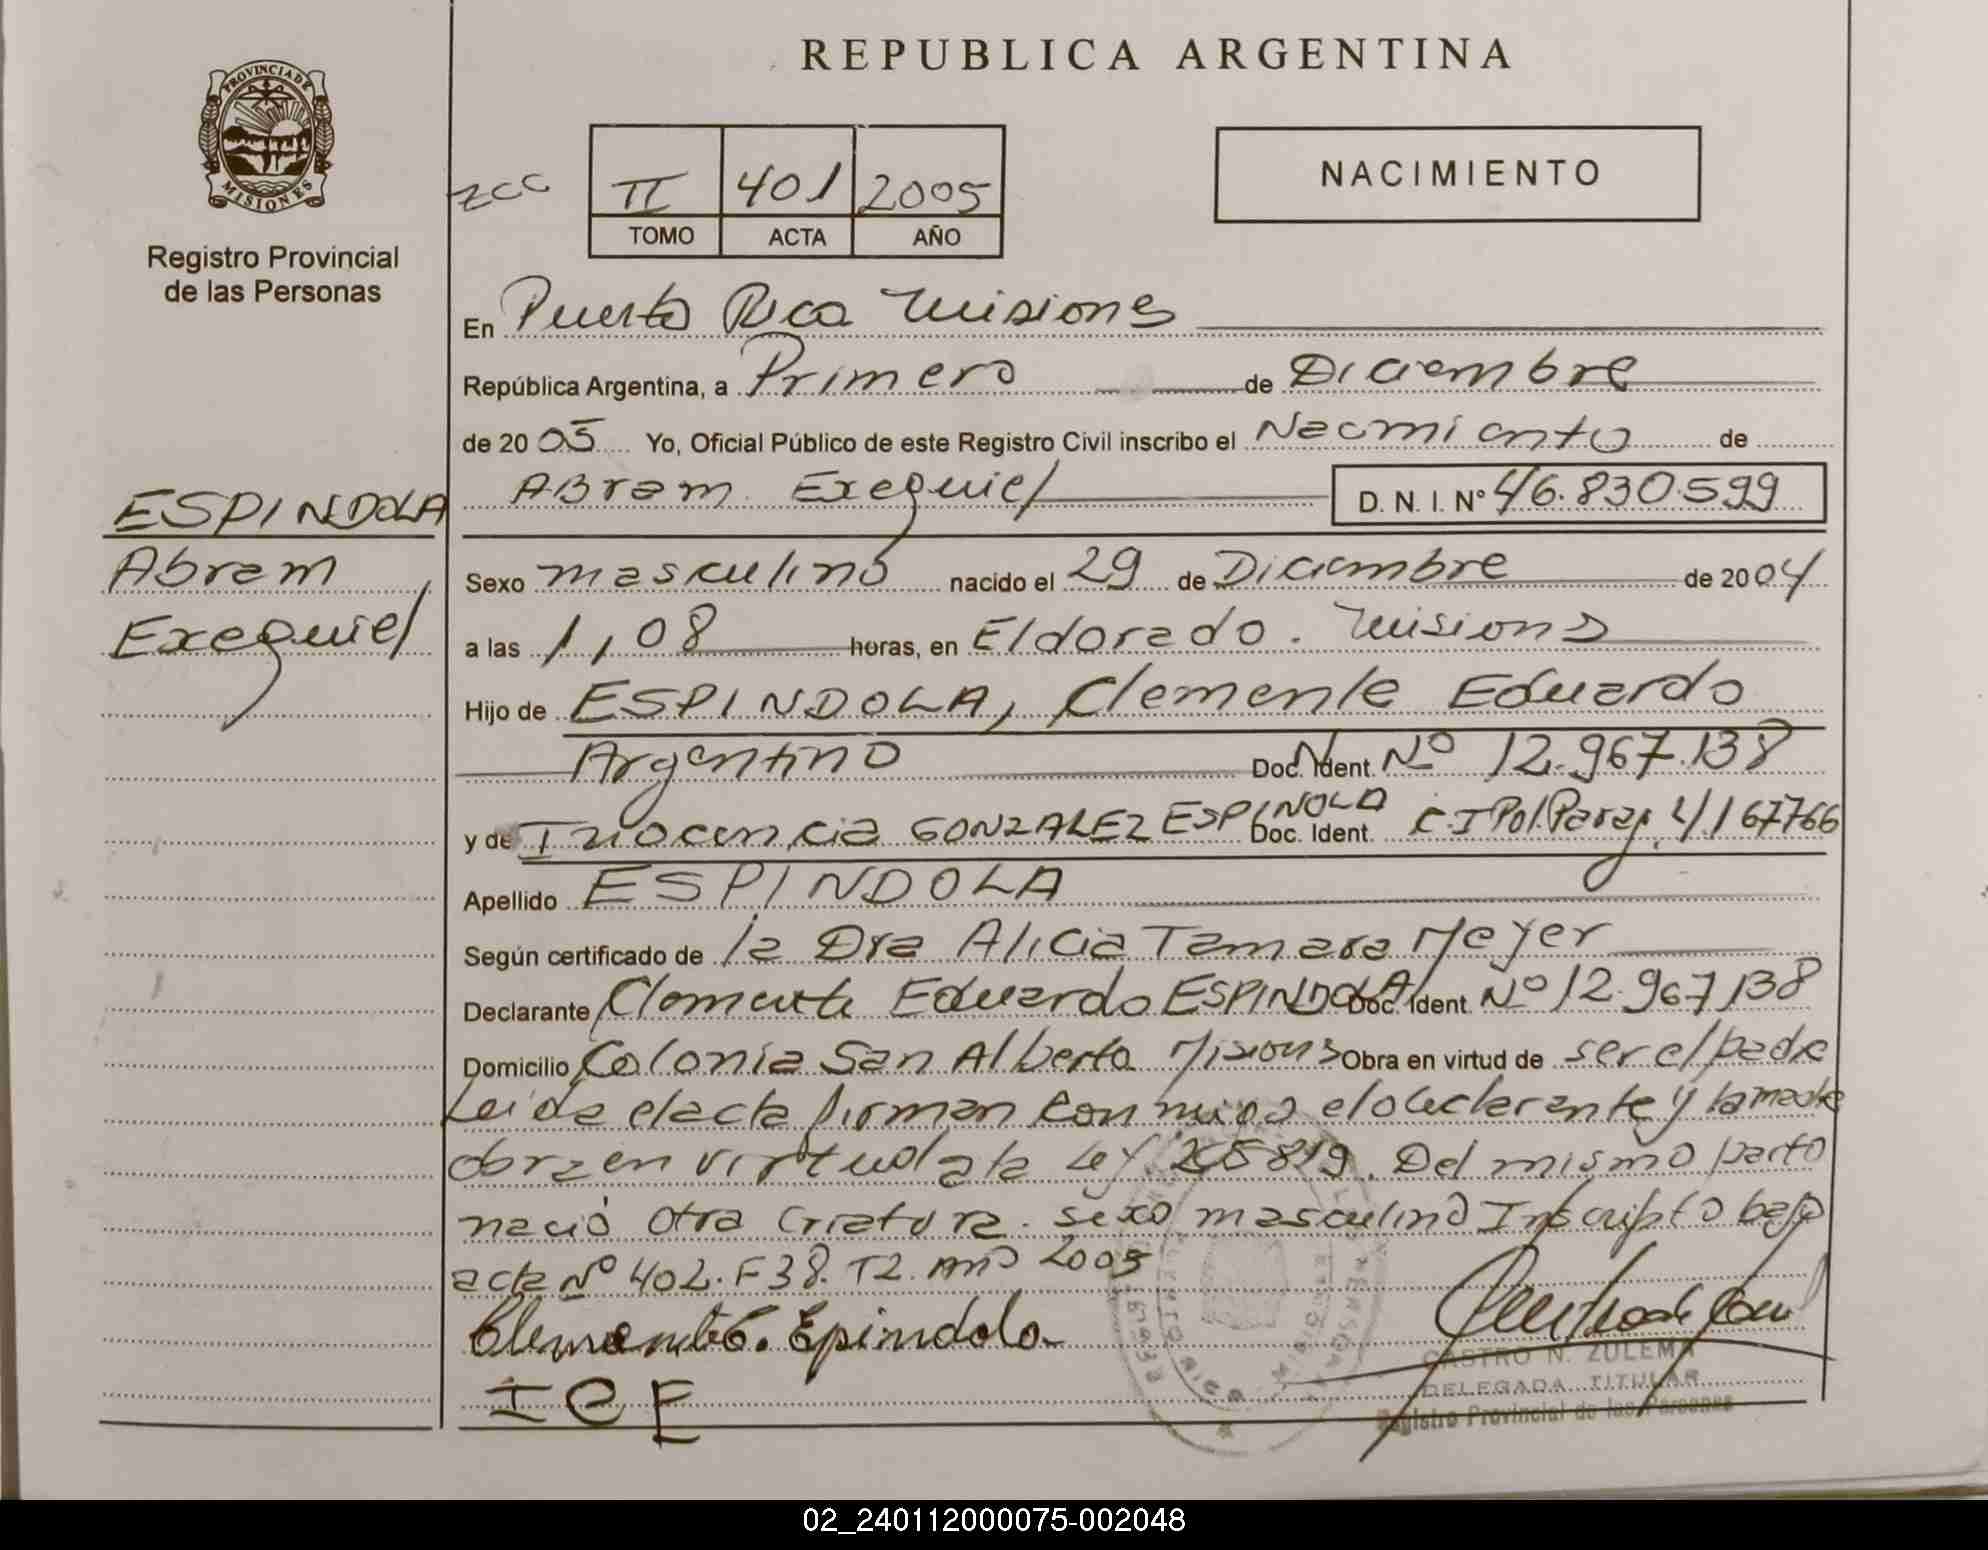 REPUBLICA ARGENTINA
PROVINCIA DE
MISIONES
Registro Provincial
de las Personas
zcc
II 401 2005
TOMO ACTA AÑO
NACIMIENTO
En Puerto Rico Misiones
República Argentina, a Primero de Diciembre
de 2005 Yo, Oficial Público de este Registro Civil inscribo el Nacimiento de
Abram Exequiel D. N. I. Nº 46.830.599
ESPINDOLA
Abram
Exequiel
Sexo masculino nacido el 29 de Diciembre de 2004
a las 1,08 horas, en Eldorado. Misiones
Hijo de ESPINDOLA, Clemente Eduardo
Argentino Doc. Ident. Nº 12.967.138
y de Inocencia GONZALEZ ESPINOLA Doc. Ident. C.I Pol. Parag. 4167766
Apellido ESPINDOLA
Según certificado de la Dra Alicia Tamara Meyer
Declarante Clemente Eduardo ESPINDOLA Doc. Ident. Nº 12.967138
Domicilio Colonia San Alberto Misiones Obra en virtud de ser el padre
Leida el acta firman conmigo el declarante y la madre
obra en virtud a la Ley Del mismo parto
nació otra criatura. sexo masculino Inscripto bajo
acta Nº 402. F 38. T2. Año 2005
Clemente E. Epindola
I C E
CASTRO N. ZULEMA
DELEGADA TITULAR
Registro Provincial de las Personas
02_240112000075-002048